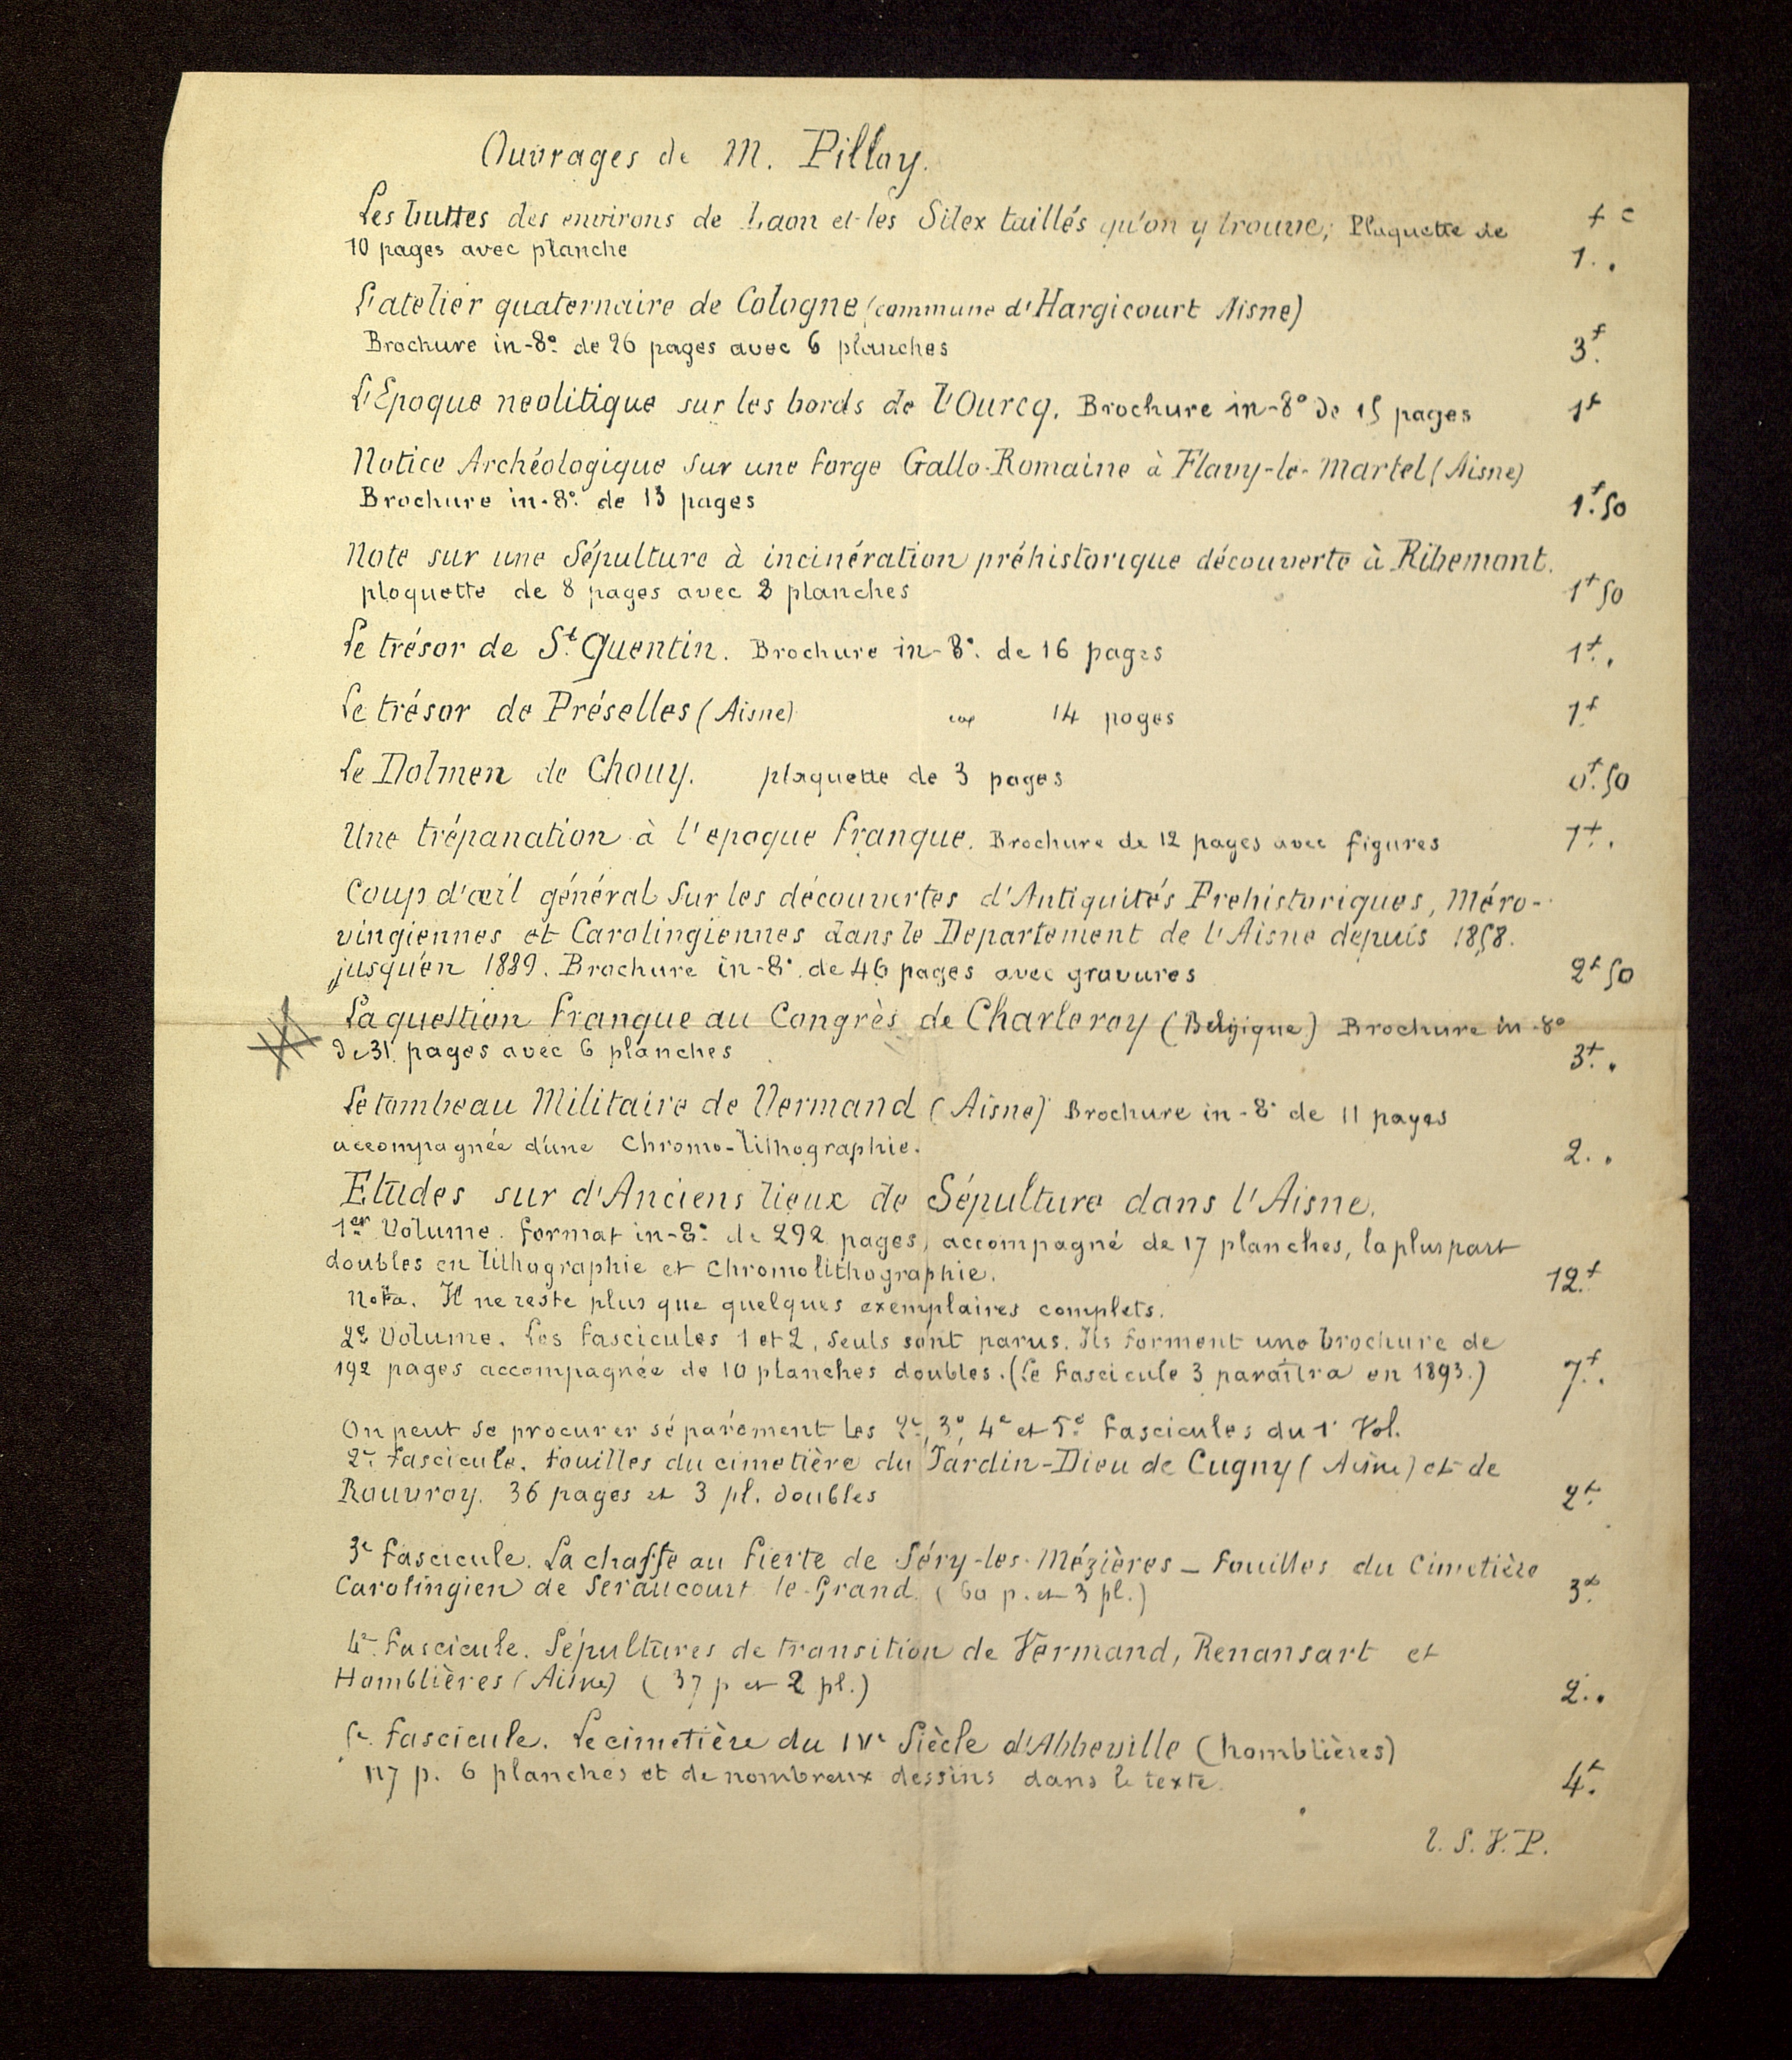 Ouvrages de M. Pilloy.
Les buttes des environs de Laon et les Silex taillés qu'on y trouve; Plaquette de f c
10 pages avec planche 1 . .
L'atelier quaternaire de Cologne (commune d'Hargicourt Aisne)
Brochure in-8° de 26 pages avec 6 planches 3f.
L'Epoque neolitique sur les bords de l'Ourcq. Brochure in-8° de 15 pages 1f
Notice Archéologique sur une forge Gallo-Romaine à Flavy-le-Martel (Aisne)
Brochure in-8° de 13 pages 1f.50
Note sur une Sépulture à incinération préhistorique découverte à Ribemont.
plaquette de 8 pages avec 2 planches 1f50
Le trésor de St. Quentin. Brochure in-8°. de 16 pages 1f. .
Le trésor de Préselles (Aisne) 14 pages 1f
Le Dolmen de Chouy. plaquette de 3 pages 0f.50
Une trépanation à l'epoque franque. Brochure de 12 pages avec figures 1f. .
Coup d'œil général sur les découvertes d'Antiquités Prehistoriques, Méro-
vingiennes et Carolingiennes dans le Departement de l'Aisne depuis 1858.
jusqu'en 1889. Brochure in-8°. de 46 pages avec gravures 2f50
La question franque au Congrès de Charleroy (Belgique) Brochure in-8°
de 31 pages avec 6 planches 3f. .
Le tombeau Militaire de Vermand (Aisne) Brochure in-8° de 11 pages
accompagnée d'une Chromo-lithographie. 2. .
Etudes sur d'Anciens lieux de Sépulture dans l'Aisne.
1er Volume. Format in-8° de 292 pages, accompagné de 17 planches, la pluspart
doubles en lithographie et chromolithographie. 12f.
Nota. Il ne reste plus que quelques exemplaires complets.
2e Volume. Les fascicules 1 et 2, seuls sont parus. Ils forment une brochure de
192 pages accompagnée de 10 planches doubles. (Le fascicule 3 paraîtra en 1893.) 7f. .
On peut se procurer séparément les 2e, 3e, 4e et 5e fascicules du 1r Vol.
2e fascicule. Fouilles du cimetière du Jardin-Dieu de Cugny (Aisne) et de
Rouvroy. 36 pages et 3 pl. doubles 2f.
3e fascicule. La chasse au fierte de Séry-les-Mézières – Fouilles du Cimetière
Carolingien de Seraucourt le-Grand. (60 p. et 3 pl.) 3f.
4e fascicule. Sépultures de transition de Vermand, Renansart et
Homblières (Aisne) (37 p et 2 pl.) 2. .
5e fascicule. Le cimetière du IVe Siècle d'Abbeville (homblières)
117 p. 6 planches et de nombreux dessins dans le texte. 4f.
T. S. V. P.